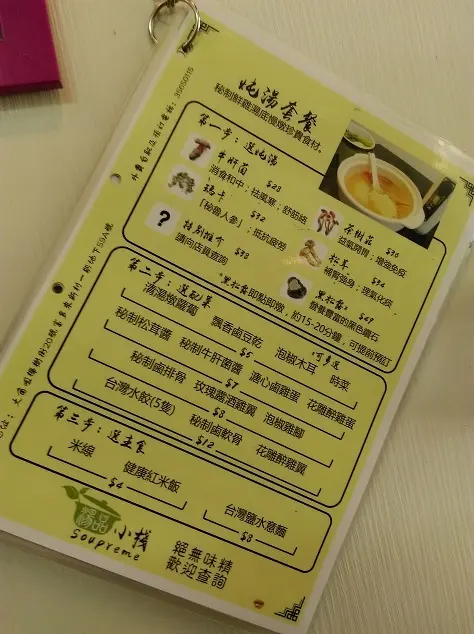 炖湯套餐
秘制鮮雞湯底慢燉珍貴食材。
第一步：選炖湯
牛肝菌 $28
消食和中；祛風寒；舒筋絡
瑪卡 $32
「秘魯人參」；抵抗疲勞
? 特別推介 $38
請向店員查詢
茶樹菇 $30
益氣開胃；增強免疫
松茸
補腎強身；理氣化痰
黑松露* $49
營養豐富的黑色鑽石
*黑松露即點即燉，約15-20分鐘，可提前預訂
第二步：選配菜
清湯燉蘿蔔 飄香鹵豆乾 泡椒木耳 時菜
$5
秘制松茸醬 秘制牛肝菌醬 溏心鹵雞蛋 花雕醉雞蛋
$7
秘制鹵排骨 玫瑰露酒雞翼 泡椒雞腳
$8
台灣水餃(5隻) 秘制鹵軟骨 花雕醉雞翼
$12
第三步：選主食
米線 健康紅米飯
$4
台灣鹽水意麵
$8
湯品小棧
Soupreme
絕無味精
歡迎查詢